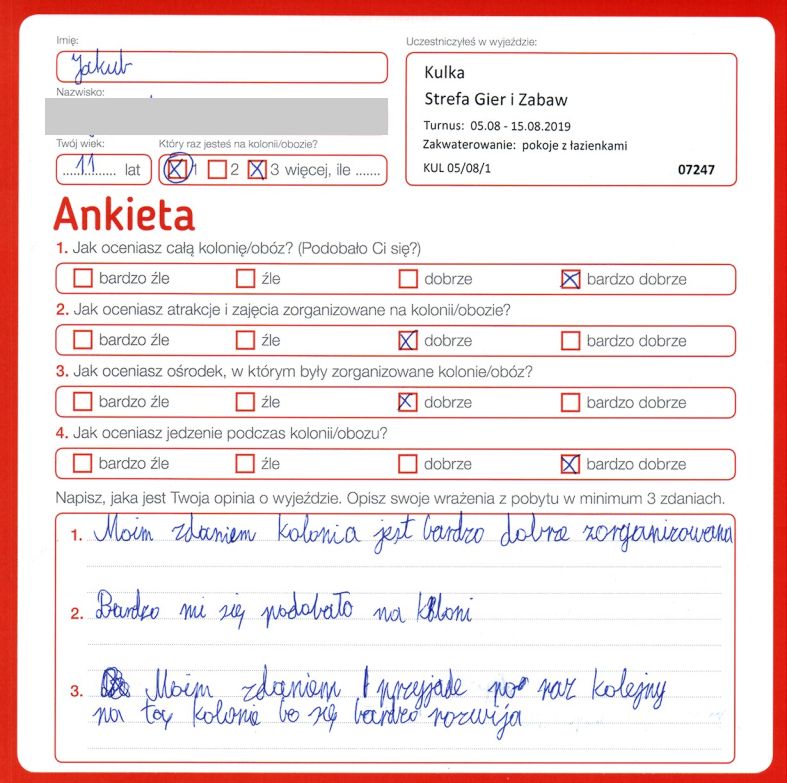 Imię:
Jakub
Uczestniczyłeś w wyjeździe:
Kulka
Strefa Gier i Zabaw
Turnus: 05.08 - 15.08.2019
Zakwaterowanie: pokoje z łazienkami
KUL 05/08/1 07247
Nazwisko:
Twój wiek: Który raz jesteś na kolonii/obozie?
11 lat 1 2 3 więcej, ile .......
Ankieta
1. Jak oceniasz całą kolonię/obóz? (Podobało Ci się?)
bardzo źle źle dobrze bardzo dobrze
2. Jak oceniasz atrakcje i zajęcia zorganizowane na kolonii/obozie?
bardzo źle źle dobrze bardzo dobrze
3. Jak oceniasz ośrodek, w którym były zorganizowane kolonie/obóz?
bardzo źle źle dobrze bardzo dobrze
4. Jak oceniasz jedzenie podczas kolonii/obozu?
bardzo źle źle dobrze bardzo dobrze
Napisz, jaka jest Twoja opinia o wyjeździe. Opisz swoje wrażenia z pobytu w minimum 3 zdaniach.
1. Moim zdaniem kolonia jest bardzo dobrze zorganizowana
2. Bardzo mi się podobało na koloni
3. Moim zdaniem przyjade po raz kolejny
na tą kolonie bo się bardzo rozwija